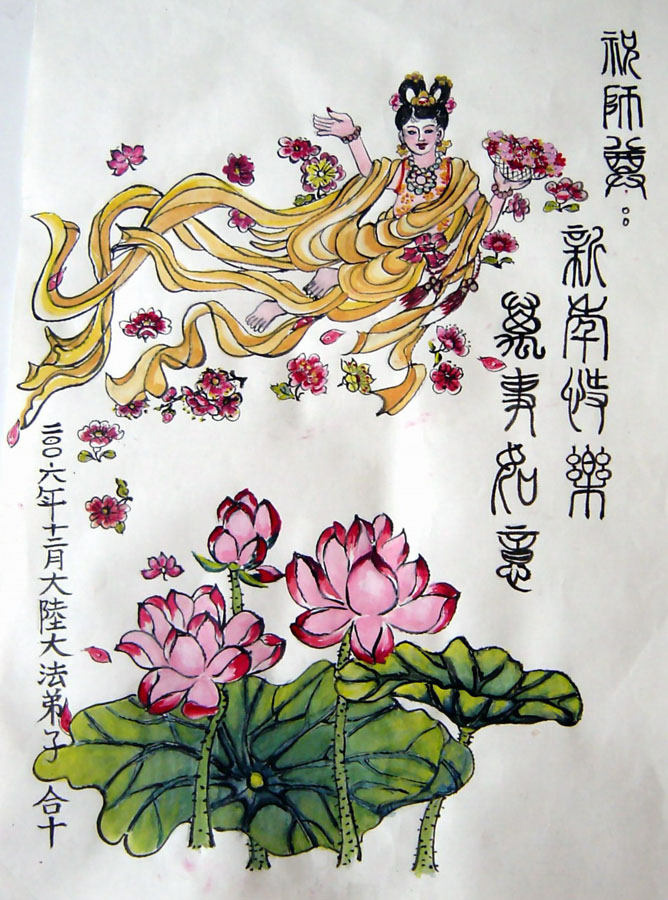 祝師尊：
新年快樂
萬事如意
二〇〇六年十二月大陸大法弟子 合十